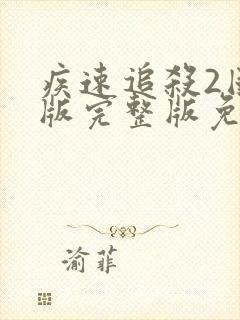 疾速追殺2
版完整版免
渝菲